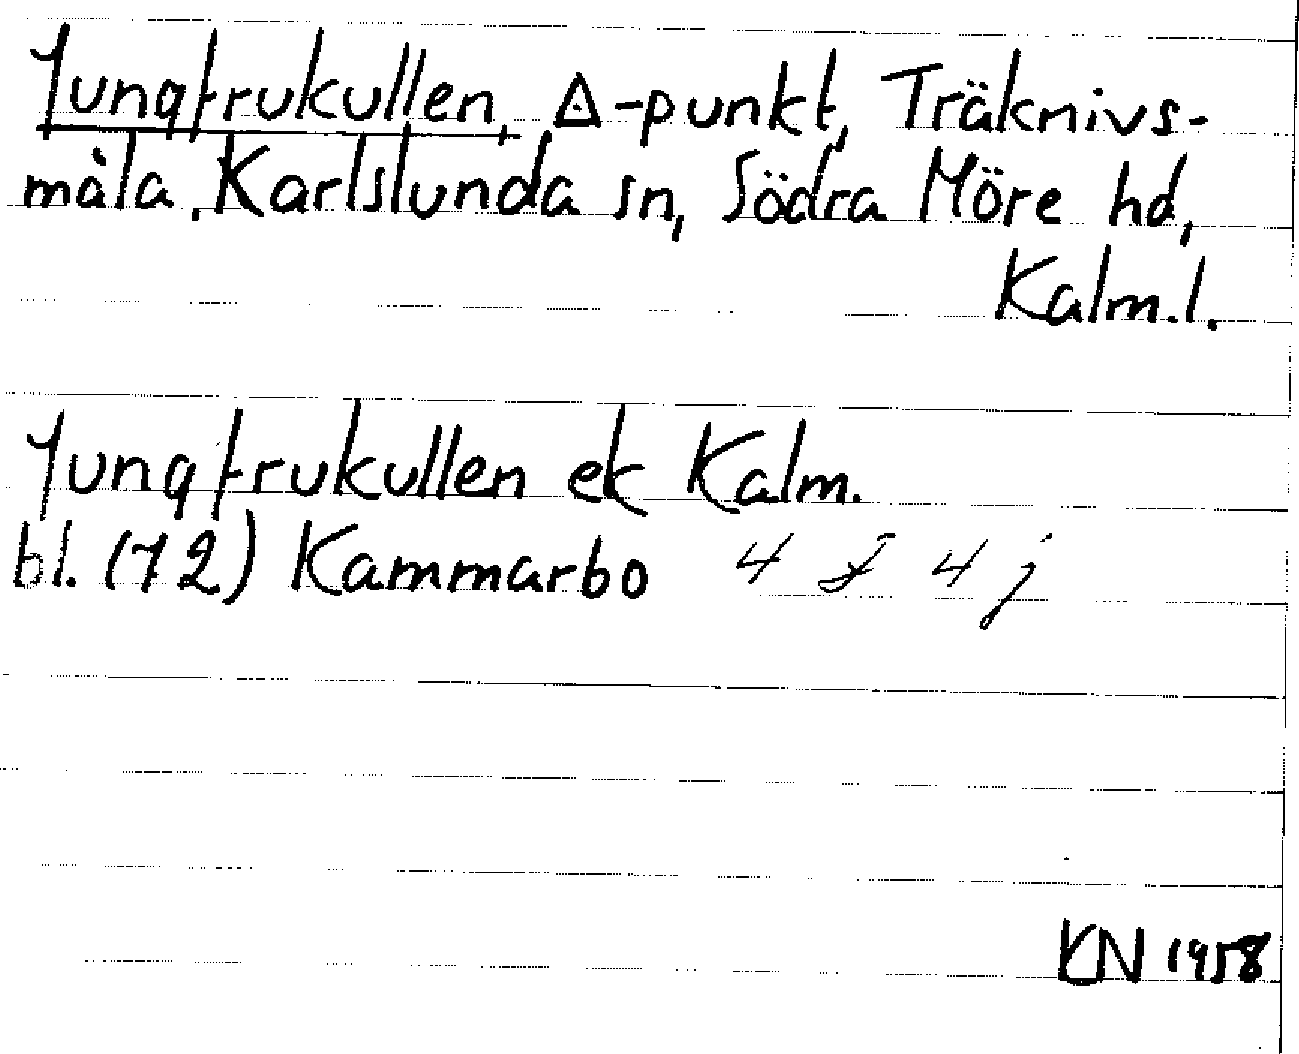 Jungfrukullen, Δ-punkt, Träknivs-
måla, Karlslunda sn, Södra Möre hd,
Kalm.l.
Jungfrukullen ek Kalm.
bl. (72) Kammarbo 4 F 4 j
KN 1958